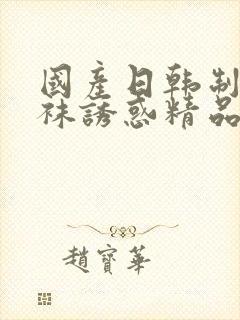 國產日韩制
袜誘惑精品
趙寶華